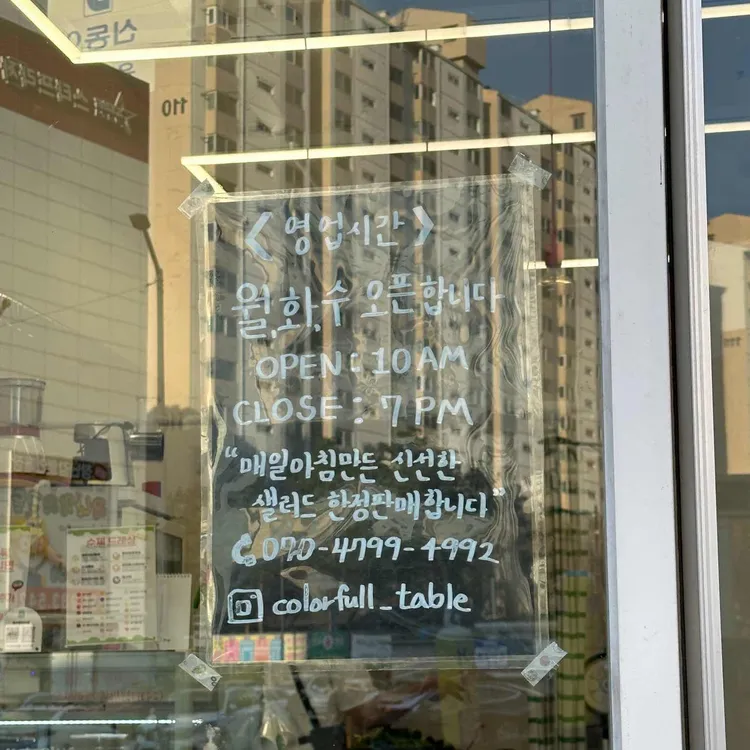 신동아
110
< 영업시간 >
월,화,수 오픈합니다
OPEN : 10 AM
CLOSE : 7 PM
"매일아침만든 신선한
샐러드 한정판매합니다"
070-4799-4992
colorfull_table